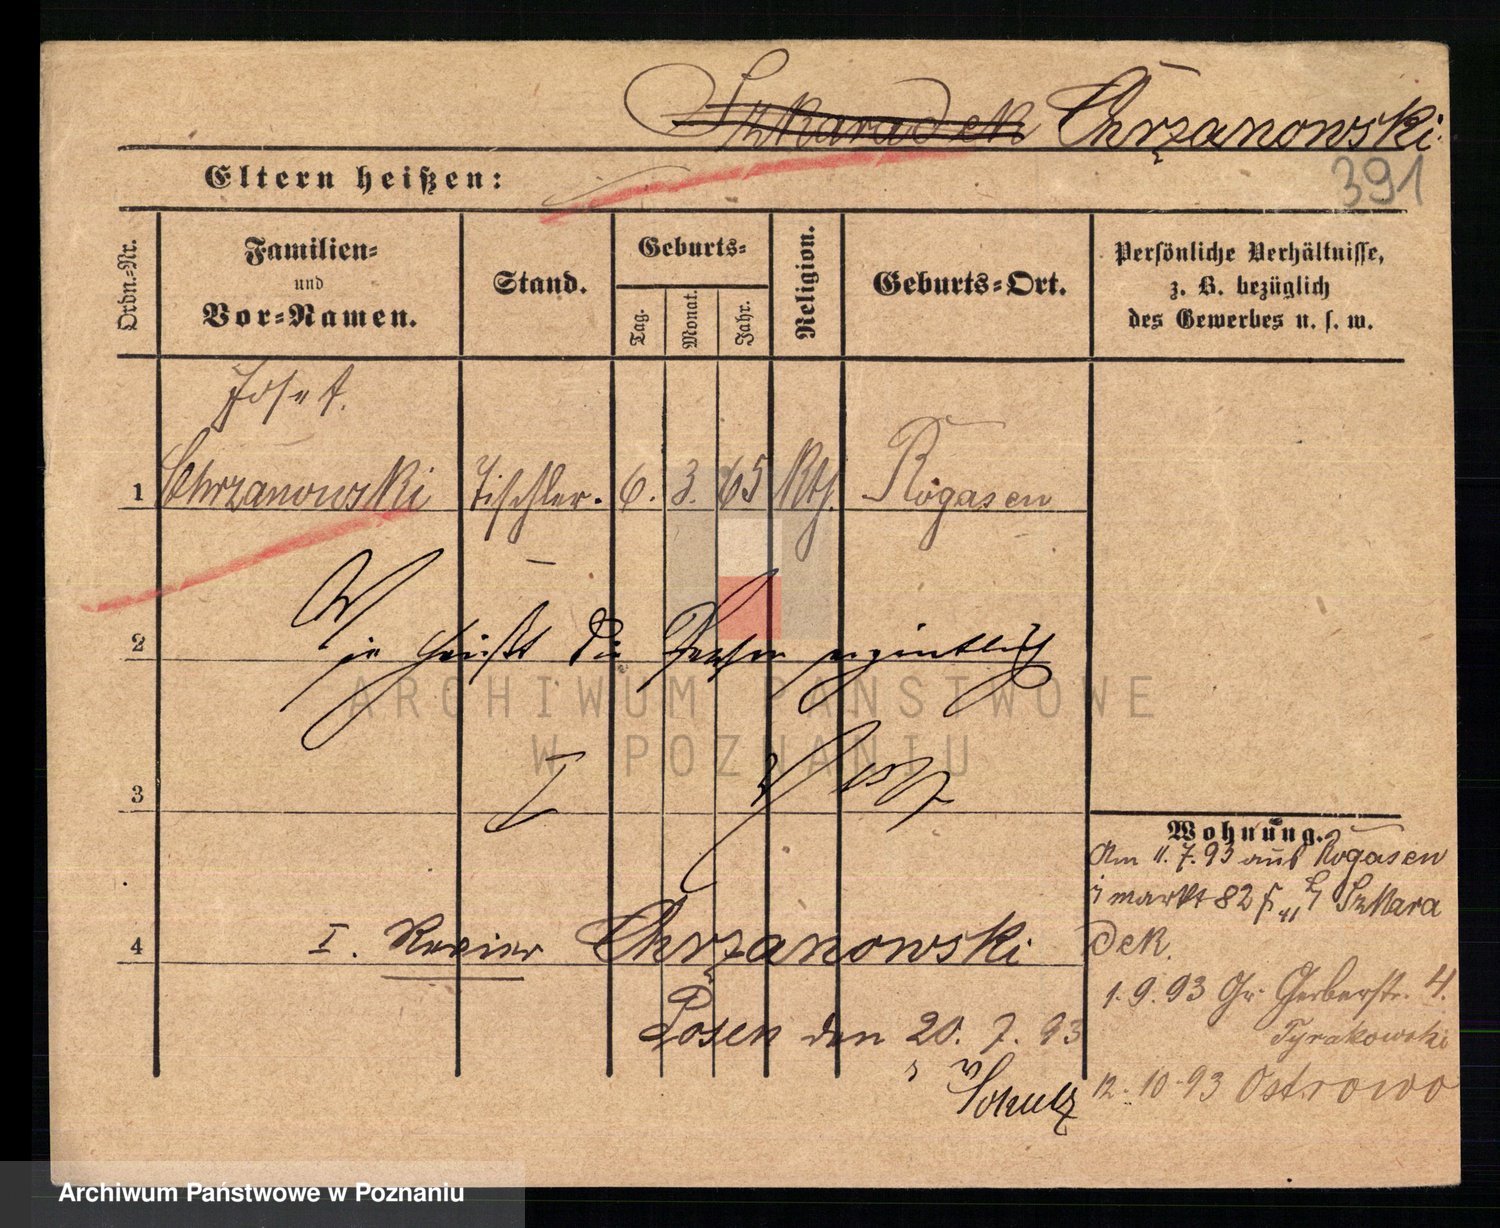 Szkaradek Chrzanowski.
391
Eltern heißen:
Ordn.=Nr.
Familien=
und
Vor=Namen.
Stand.
Geburts=
Tag.
Monat.
Jahr.
Religion.
Geburts=Ort.
Persönliche Verhältnisse,
z. B. bezüglich
des Gewerbes u. s. w.
Josef.
1 Chrzanowski Tischler. 6. 3. 65 Kth. Rogasen
2 Wie heißt die Person eigentlich
3 I
4 I. Revier Chrzanowski
Posen den 20. 7. 93
Schulz
Wohnung.
Am 11. 7. 93 aus Rogasen
markt 82 Szkara
dek.
1. 9. 93 Gr. Gerberstr. 4.
Tyrakowski
12. 10. 93 Ostrowo
ARCHIWUM PAŃSTWOWE
W POZNANIU
Archiwum Państwowe w Poznaniu